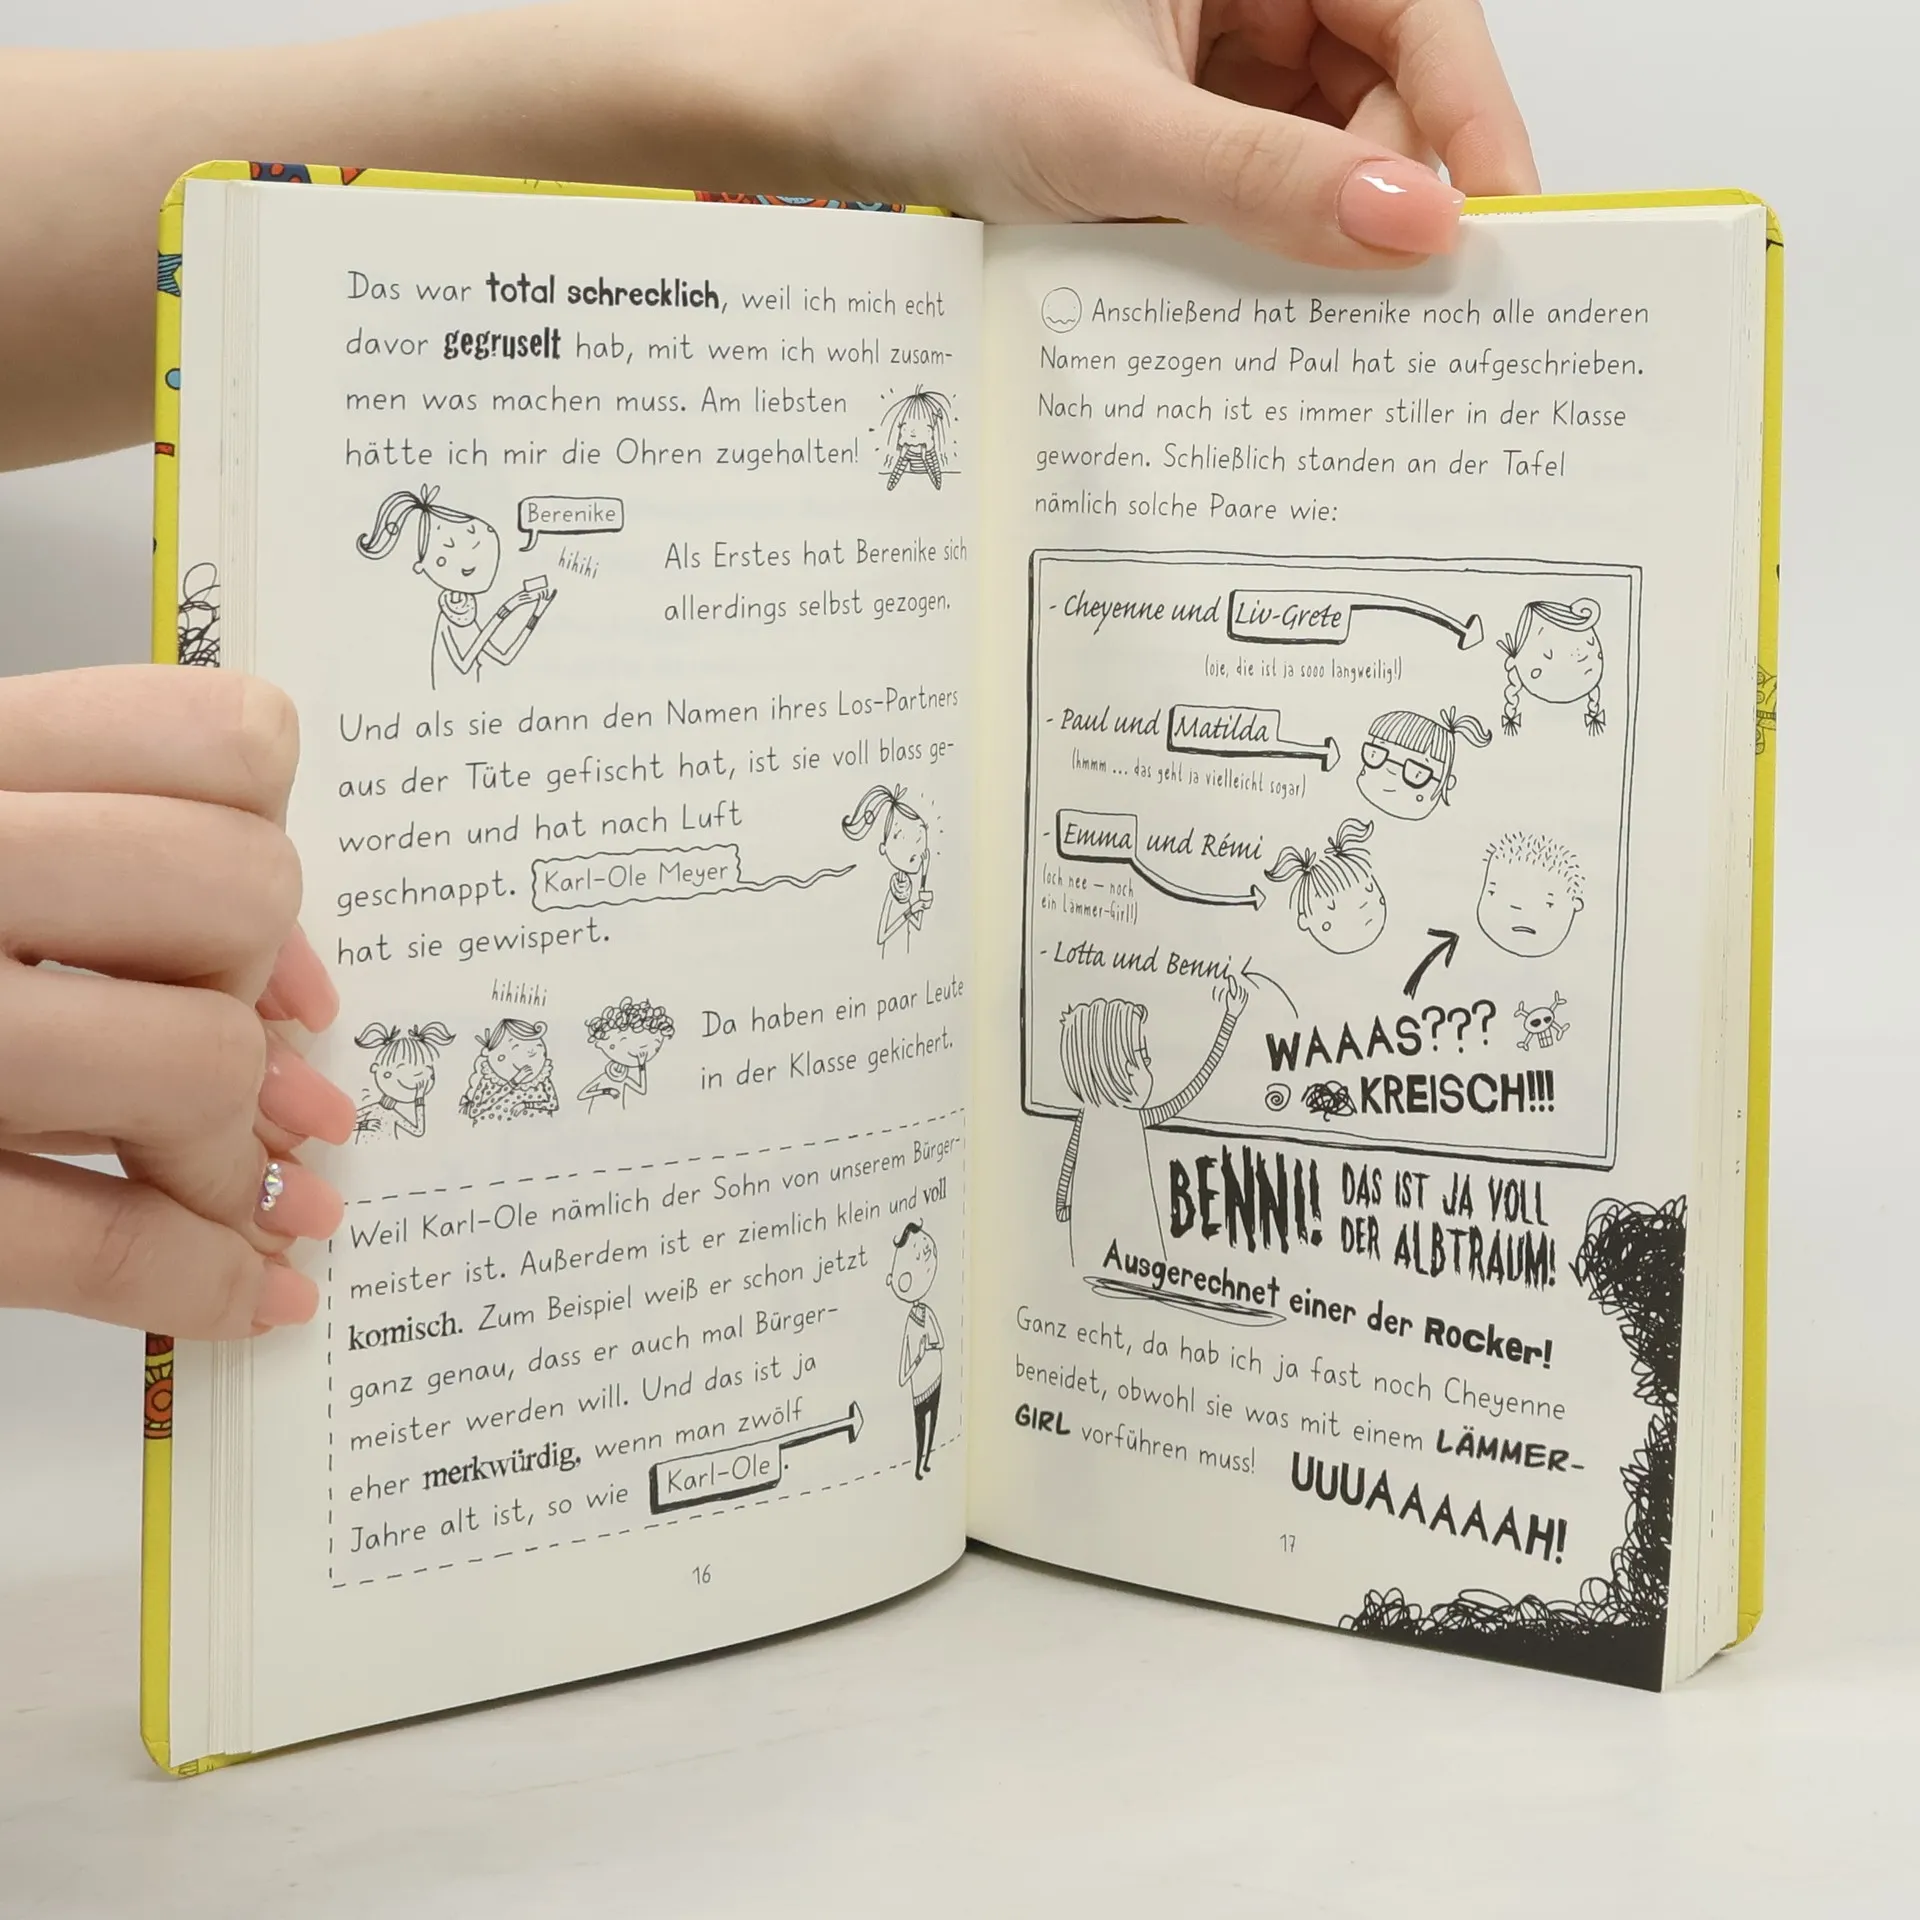 Das war total schrecklich, weil ich mich echt
davor gegruselt hab, mit wem ich wohl zusam-
men was machen muss. Am liebsten
hätte ich mir die Ohren zugehalten!
Berenike
hihihi
Als Erstes hat Berenike sich
allerdings selbst gezogen.
Und als sie dann den Namen ihres Los-Partners
aus der Tüte gefischt hat, ist sie voll blass ge-
worden und hat nach Luft
geschnappt. Karl-Ole Meyer
hat sie gewispert.
hihihihi
Da haben ein paar Leute
in der Klasse gekichert.
Weil Karl-Ole nämlich der Sohn von unserem Bürger-
meister ist. Außerdem ist er ziemlich klein und voll
komisch. Zum Beispiel weiß er schon jetzt
ganz genau, dass er auch mal Bürger-
meister werden will. Und das ist ja
eher merkwürdig, wenn man zwölf
Jahre alt ist, so wie Karl-Ole.
16
Anschließend hat Berenike noch alle anderen
Namen gezogen und Paul hat sie aufgeschrieben.
Nach und nach ist es immer stiller in der Klasse
geworden. Schließlich standen an der Tafel
nämlich solche Paare wie:
- Cheyenne und Liv-Grete
(oje, die ist ja sooo langweilig!)
- Paul und Matilda
(hmmm ... das geht ja vielleicht sogar)
- Emma und Rémi
(och nee – noch
ein Lämmer-Girl!)
- Lotta und Benni
WAAAS???
KREISCH!!!
BENNI! DAS IST JA VOLL
DER ALBTRAUM!
Ausgerechnet einer der Rocker!
Ganz echt, da hab ich ja fast noch Cheyenne
beneidet, obwohl sie was mit einem LÄMMER-
GIRL vorführen muss! UUUAAAAAH!
17